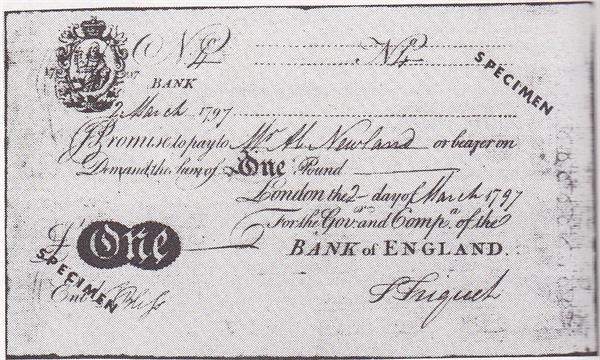 Nº 4 Nº 4
SPECIMEN
17 97
BANK
2 March 1797
I Promise to pay to Mr. Ab. Newland or bearer on
Demand, the sum of One Pound
London the 2 day of March 1797
For the Govr. and Compa. of the
£ One
BANK of ENGLAND.
SPECIMEN
Entd.